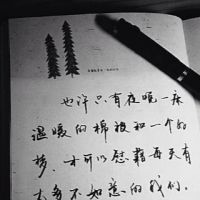 也许只有夜晚一床
温暖的棉被和一个好
梦，才可以慰藉每天有
太多不如意的我们。